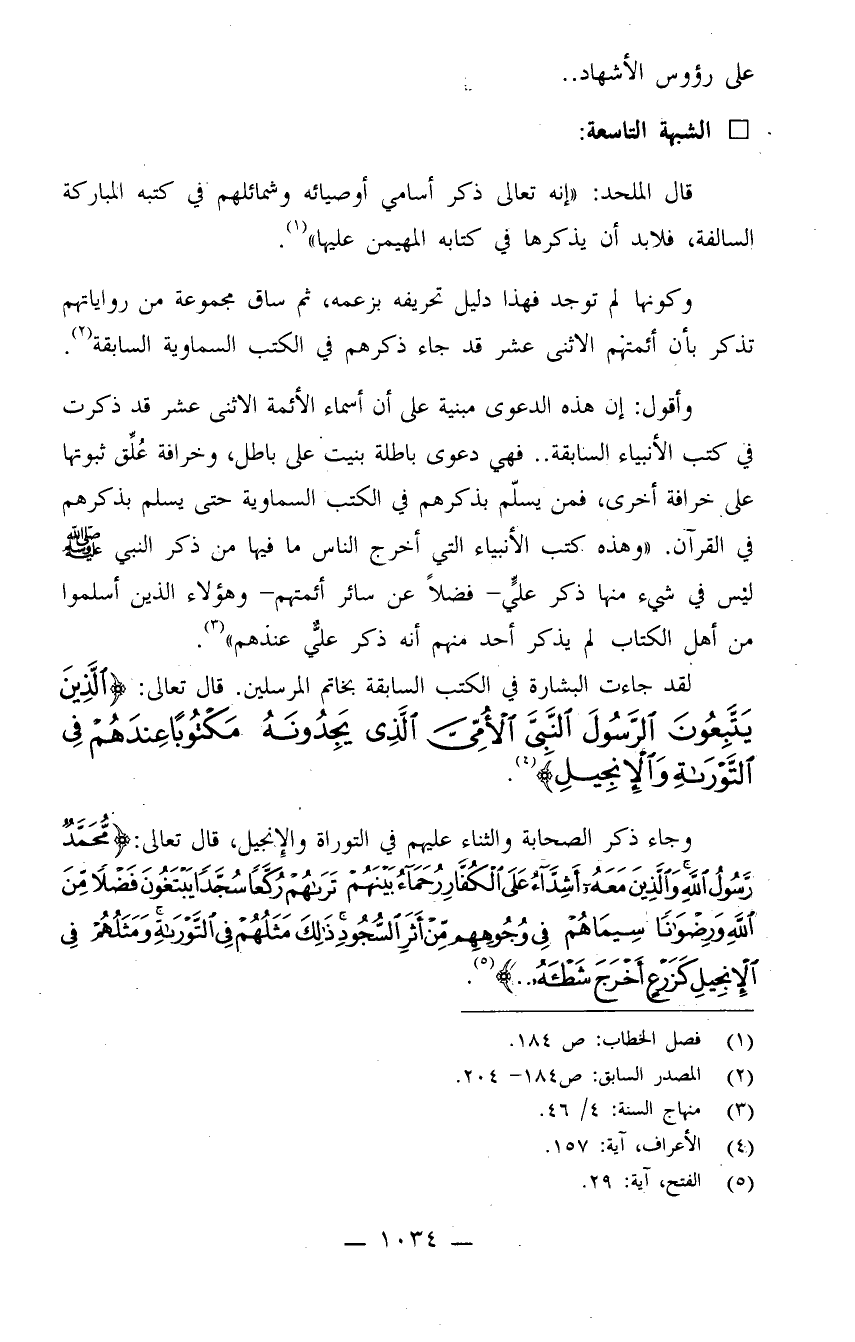 على رؤوس الأشهاد..
□ الشبهة التاسعة:
قال الملحد: «إنه تعالى ذكر أسامي أوصيائه وشمائلهم في كتبه المباركة
السالفة، فلابد أن يذكرها في كتابه المهيمن عليها»(١).
وكونها لم توجد فهذا دليل تحريفه بزعمه، ثم ساق مجموعة من رواياتهم
تذكر بأن أئمتهم الاثنى عشر قد جاء ذكرهم في الكتب السماوية السابقة(٢).
وأقول: إن هذه الدعوى مبنية على أن أسماء الأئمة الاثنى عشر قد ذكرت
في كتب الأنبياء السابقة.. فهي دعوى باطلة بنيت على باطل، وخرافة عُلِّق ثبوتها
على خرافة أخرى، فمن يسلّم بذكرهم في الكتب السماوية حتى يسلم بذكرهم
في القرآن. «وهذه كتب الأنبياء التي أخرج الناس ما فيها من ذكر النبي ﷺ
ليس في شيء منها ذكر عليٍّ– فضلاً عن سائر أئمتهم– وهؤلاء الذين أسلموا
من أهل الكتاب لم يذكر أحد منهم أنه ذكر عليٌّ عندهم»(٣).
لقد جاءت البشارة في الكتب السابقة بخاتم المرسلين. قال تعالى: ﴿الَّذِينَ
يَتَّبِعُونَ الرَّسُولَ النَّبِيَّ الْأُمِّيَّ الَّذِي يَجِدُونَهُ مَكْتُوبًا عِندَهُمْ فِي
التَّوْرَىٰةِ وَالْإِنجِيلِ﴾(٤).
وجاء ذكر الصحابة والثناء عليهم في التوراة والإنجيل، قال تعالى: ﴿مُّحَمَّدٌ
رَّسُولُ اللَّهِ ۚ وَالَّذِينَ مَعَهُۥٓ أَشِدَّآءُ عَلَى الْكُفَّارِ رُحَمَآءُ بَيْنَهُمْ تَرَىٰهُمْ رُكَّعًا سُجَّدًا يَبْتَغُونَ فَضْلًا مِّنَ
اللَّهِ وَرِضْوَٰنًا سِيمَاهُمْ فِي وُجُوهِهِم مِّنْ أَثَرِ السُّجُودِ ۚ ذَٰلِكَ مَثَلُهُمْ فِي التَّوْرَىٰةِ ۚ وَمَثَلُهُمْ فِي
الْإِنجِيلِ كَزَرْعٍ أَخْرَجَ شَطْـَٔهُۥ..﴾(٥).
(١) فصل الخطاب: ص ١٨٤.
(٢) المصدر السابق: ص١٨٤– ٢٠٤.
(٣) منهاج السنة: ٤/ ٤٦.
(٤) الأعراف، آية: ١٥٧.
(٥) الفتح، آية: ٢٩.
— ١٠٣٤ —